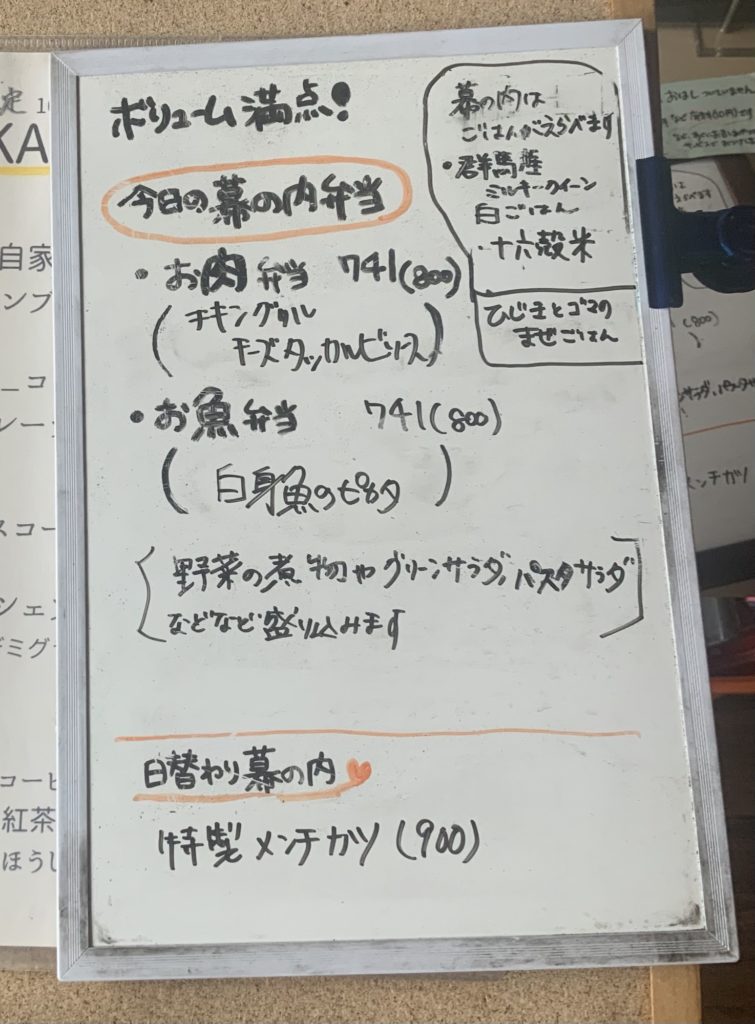 ボリューム満点!
今日の幕の内弁当
・お肉弁当 741(800)
(チキングリル
チーズタッカルビソース)
・お魚弁当 741(800)
(白身魚のピカタ)
野菜の煮物やグリーンサラダ,パスタサラダ
などなど盛り込みます
日替わり幕の内
特製メンチカツ(900)
幕の内は
ごはんがえらべます
・群馬産
ミルキークイーン
白ごはん
・十六穀米
ひじきとゴマの
まぜごはん
定 10
KA
自家
ンプ
コ
レー
スコー
シェン
デミグ
コーヒ
紅茶
ほうじ
おはし ついていません
(800)
メンチカツ